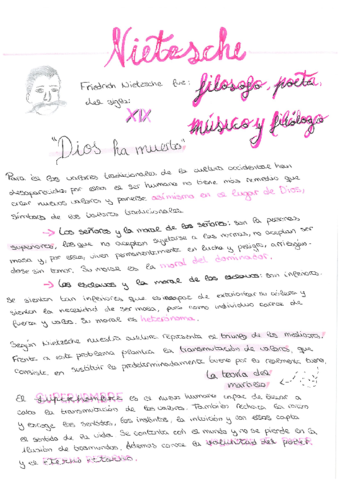 Nietzsche
Friedrich Nietzsche fue: filósofo, poeta,
del siglo: músico y filólogo
XIX
"Dios ha muerto"
Para él los valores tradicionales de la cultura occidental han
desaparecido, por esto el ser humano no tiene más remedio que
crear nuevos valores y ponerse asimismo en el lugar de Dios,
símbolo de los valores tradicionales.
→ Los señores y la moral de los señores: son la personas
superiores, los que no aceptan sujetarse a las normas, no aceptan ser
masa y, por eso, viven permanentemente en lucha y peligro, afirmán-
dose sin temor. Su moral es la moral del dominador.
→ Los esclavos y la moral de los esclavos: son inferiores.
Se sienten tan inferiores que es incapaz de exteriorizar su
sienten la necesidad de ser masa, pues como individuo carece de
fuerza y valor. Su moral es heterónoma.
Según Nietzsche nuestra cultura representa el triunfo de los mediocres.
Frente a este problema plantea la transmutación de valores, que
consiste, en sustituir lo predeterminadamente bueno por lo realmente bueno.
La teoría del
martillo
El superhombre es el nuevo humano capaz de llevar a
cabo la transmutación de los valores. También rechaza la razón
y escoge los sentidos, los instintos, la intuición y con ellos capta
el sentido de la vida. Se contenta con el mundo y no se pierde en la
ilusión de trasmundos. Además conoce la voluntad del poder
y el eterno retorno.